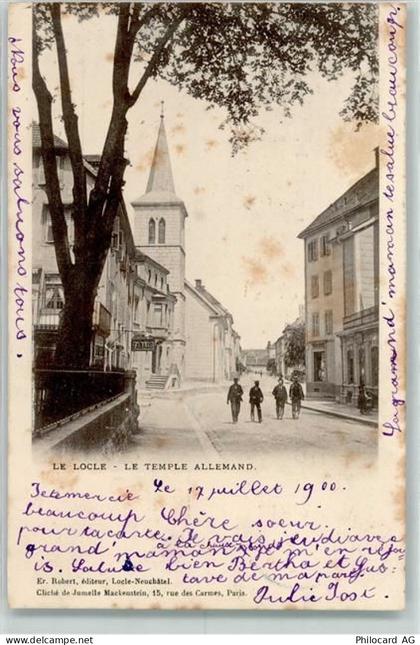 Nous vous saluons tous.
La grand'maman te salue beaucoup, beaucoup
TABAC
LE LOCLE - LE TEMPLE ALLEMAND.
Le 17 juillet 1900.
Je te mercie
beaucoup, Chère soeur.
pour ta carte. Je vais jeudi avec
à la chaux
grand'maman m'en réjou
is. Salue bien Bertha et Gus-
tave de ma part.
Julie Jost.
Er. Robert, éditeur, Locle-Neuchâtel.
Cliché de Jumelle Mackenstein, 15, rue des Carmes, Paris.
Postcard AG
delcampe.net